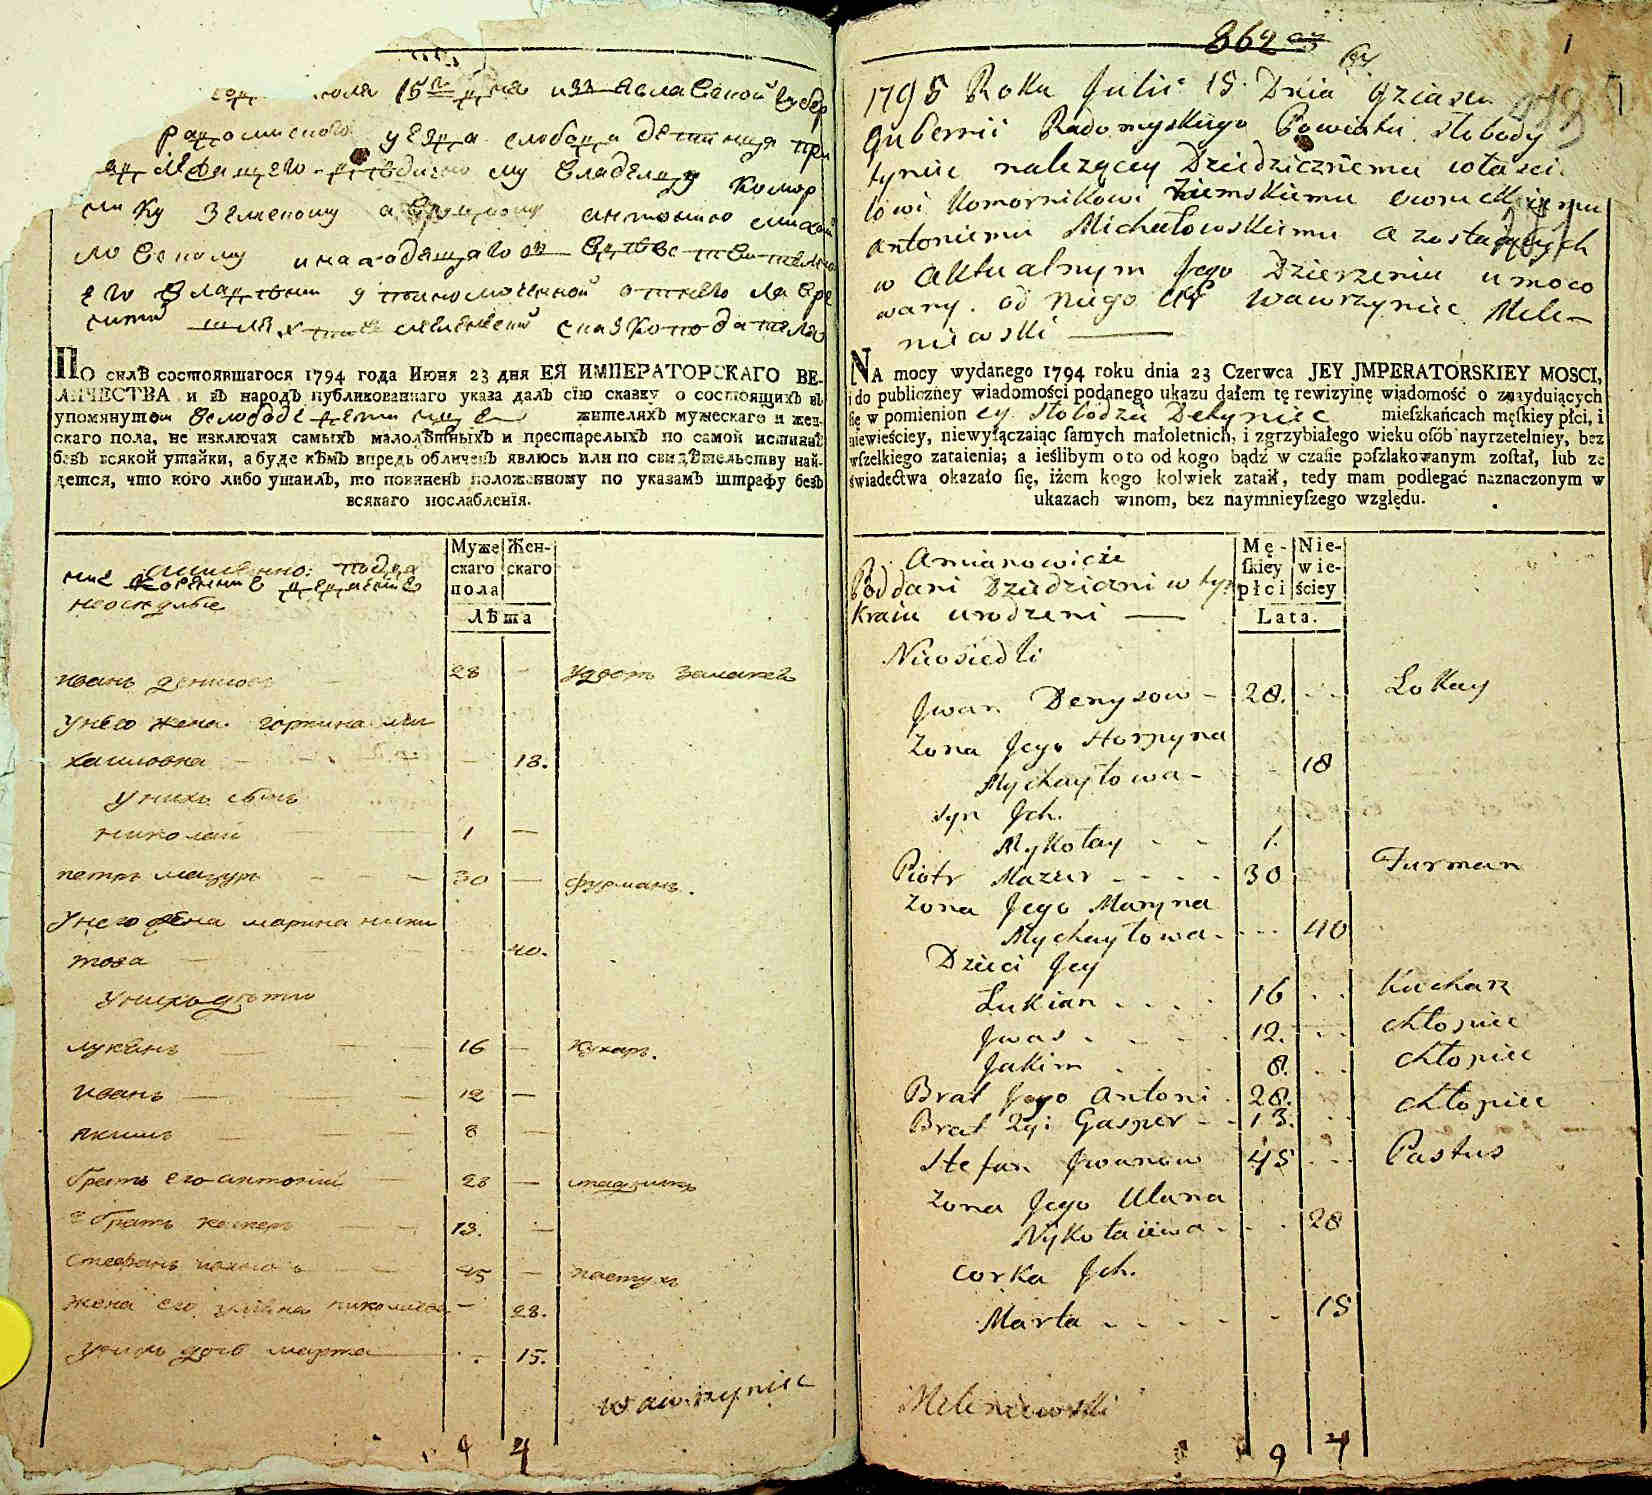 15 дня изяславской губер
радомиского уезда слобода детинця при
му владелцу комор
нику земскому антонию михай
ловскому инаходящагося
его владении уполномоченной отнего лавре
сказкоподатель
ПО силѣ состоявшагося 1794 года Июня 23 дня ЕЯ ИМПЕРАТОРСКАГО ВЕ-
ЛИЧЕСТВА и въ народъ публикованнаго указа далъ сію сказку о состоящихъ въ
упомянутой слободе жителяхъ мужескаго и жен-
скаго пола, не изключая самыхъ малолѣтныхъ и престарелыхъ по самой истиннѣ
безъ всякой утайки, а буде кѣмъ впредь обличенъ явлюсь или по свидѣтельству най-
дется, что кого либо утаилъ, то повиненъ положенному по указамъ штрафу безъ
всякаго послабленія.
Муже Жен-
скаго скаго
пола
Лѣта
имянно: подда
неоседлые
иванъ денисовъ 28 —
Унего жена горпина ми
хаиловна 18.
Унихъ сынъ
николай 1 —
петръ мазуръ 30 — фурманъ.
Унего жена марина ники
това 40.
Унихъ дети
лукянъ 16 — кухаръ.
иванъ 12 —
якимъ 8 —
братъ его антоний 28 —
2 братъ касперъ 13. —
стефанъ ивановъ 45 — пастухъ
жена его уляна николаева — 28.
Унихъ дочь марта 15.
Wawrzyniec
9 4
864
1
1795 Roku Julii 15 Dnia Jziasła
Gubernii Radomyskiego Powiatu Słobody
tyniec należącey Dziedzicznemu własci
łowi Komornikowi Ziemskiemu
Antoniemu Michałowskiemu a zostaiących
w Aktualnym Jego Dzierzeniu umoco
wany od niego Wawrzyniec Mele-
niewski
NA mocy wydanego 1794 roku dnia 23 Czerwca JEY JMPERATORSKIEY MOSCI,
i do publiczney wiadomości podanego ukazu dałem tę rewizyinę wiadomość o znayduiących
się w pomienioney Słobodzie Detyniec mieszkańcach męskiey płci, i
niewieściey, niewyłączaiąc samych małoletnich, i zgrzybiałego wieku osób nayrzetelniey, bez
wszelkiego zataienia; a ieślibym o to od kogo bądź w czasie poszlakowanym został, lub ze
świadectwa okazało się, iżem kogo kolwiek zataił, tedy mam podlegać naznaczonym w
ukazach winom, bez naymnieyszego względu.
Mę- Nie-
skiey wie-
płci ściey
Lata.
Amianowicie
Poddani Dziedziczni w tym
Kraiu urodzeni —
Nieosiedli
Jwan Denysow - 28. Lokay
Zona Jego Horpyna
Mychayłowa - 18
Syn Jch.
Mykołay - - 1.
Piotr Mazur - - - - 30 Furman
Zona Jego Maryna
Mychayłowa - - - 40
Dzieci Jey
Łukian . . . . 16 Kucharz
Jwas . . . . 12. Chłopiec
Jakim . . . 8. Chłopiec
Brat Jego Antoni . 28. Chłopiec
Brat 2gi Gasper - - 13.
Stefan Jwanow 45 Pastuch
Zona Jego Ulana
Nykołaiewa - 28
Corka Jch.
Marta - - - - - 15
Meleniewski
9 4